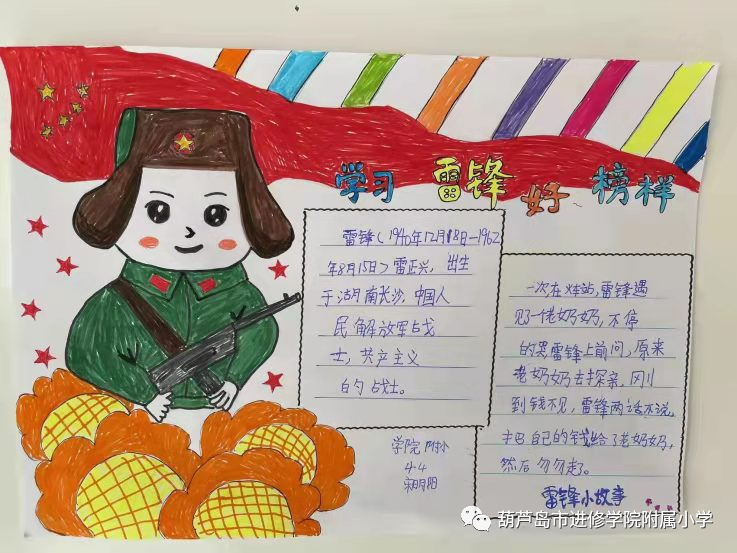 学习 雷锋 好 榜样
雷锋(1940年12月18日—1962
年8月15日)雷正兴，出生
于湖南长沙，中国人
民解放军战
士，共产主义
的战士。
一次在火车站，雷锋遇
见了一佬奶奶，不停
的哭雷锋上前问，原来
老奶奶去探亲，刚
到钱不见，雷锋两话不说，
把自己的钱给了老奶奶，
然后匆匆走了。
雷锋小故事
学院附小
4-4
葫芦岛市进修学院附属小学